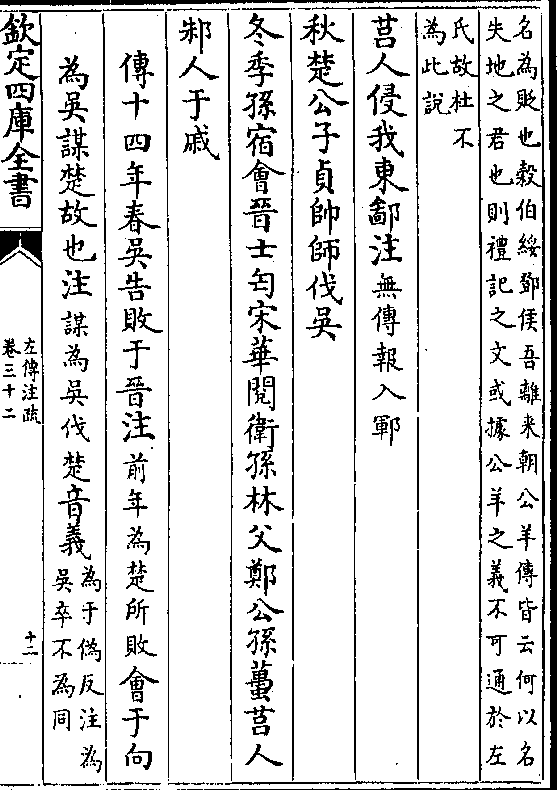 名為貶也穀伯綏鄧侯吾離来朝公羊傳皆云何以名
失地之君也則禮記之文或據公羊之義不可通於左
氏故杜不
為此說
莒人侵我東鄙注無傳報入鄆
秋楚公子貞帥師伐吳
冬季孫宿會晉士匄宋華閱衛孫林父鄭公孫蠆莒人
邾人于戚
傳十四年春吳告敗于晉注前年為楚所敗會于向
為吳謀楚故也注謀為吳伐楚音義為于偽反注為
吳卒不為同
欽定四庫全書
左傳注疏
卷三十二
十二